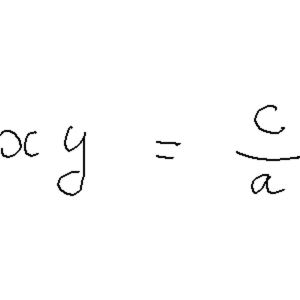 xy = c/a